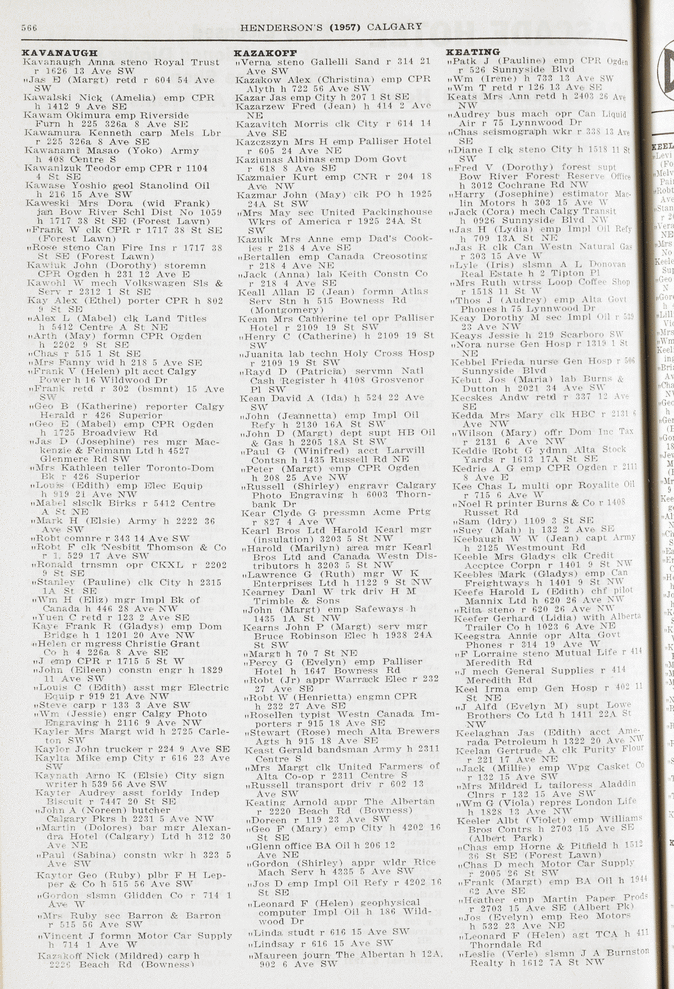 566
HENDERSON'S (1957) CALGARY
KAVANAUGH
Kavanaugh Anna steno Royal Trust
r 1626 13 Ave SW
„Jas E (Margt) retd r 604 54 Ave
SW
Kawalski Nick (Amelia) emp CPR
h 1412 9 Ave SE
Kawam Okimura emp Riverside
Furn h 225 326a 8 Ave SE
Kawamura Kenneth carp Mels Lbr
r 225 326a 8 Ave SE
Kawanami Masao (Yoko) Army
h 408 Centre S
Kawanizuk Teodor emp CPR r 1104
4 St SE
Kawase Yoshio geol Stanolind Oil
h 216 15 Ave SW
Kaweski Mrs Dora (wid Frank)
jan Bow River Schl Dist No 1059
h 1717 38 St SE (Forest Lawn)
„Frank W clk CPR r 1717 38 SE
(Forest Lawn)
„Rose steno Can Fire Ins r 1717 38
St SE (Forest Lawn)
Kawiuk John (Dorothy) storemn
CPR Ogden h 231 12 Ave E
Kawohl W mech Volkswagen Sls &
Serv r 2312 1 St SE
Kay Alex (Ethel) porter CPR h 802
9 St SE
„Alex L (Mabel) clk Land Titles
h 5412 Centre A St NE
„Arth (May) formn CPR Ogden
h 2202 9 St SE
„Chas r 515 1 St SE
„Mrs Fanny wid h 218 5 Ave SE
„Frank V (Helen) plt acct Calgy
Power h 16 Wildwood Dr
„Frank retd r 302 (bsmnt) 15 Ave
SW
„Geo B (Katherine) reporter Calgy
Herald r 426 Superior
„Geo E (Mabel) emp CPR Ogden
h 1725 Broadview Rd
„Jas D (Josephine) res mgr Mac-
kenzie & Feimann Ltd h 4527
Glenmere Rd SW
„Mrs Kathleen teller Toronto-Dom
Bk r 426 Superior
„Louis (Edith) emp Elec Equip
h 919 21 Ave NW
„Mabel slsclk Birks r 5412 Centre
A St NE
„Mark H (Elsie) Army h 2222 36
Ave SW
„Robt comnre r 343 14 Ave SW
„Robt F clk Nesbitt Thomson & Co
r 1, 529 17 Ave SW
„Ronald trnsmn opr CKXL r 2202
9 St SE
„Stanley (Pauline) clk City h 2315
1A St SE
„Wm H (Eliz) mgr Impl Bk of
Canada h 446 28 Ave NW
„Yuen C retd r 123 2 Ave SE
Kaye Frank R (Gladys) emp Dom
Bridge h 1 1201 20 Ave NW
„Helen cr mgress Christie Grant
Co h 4 226a 8 Ave SE
„J emp CPR r 1715 5 St W
„John (Eileen) constn engr h 1829
11 Ave SW
„Louis C (Edith) asst mgr Electric
Equip r 919 21 Ave NW
„Steve carp r 133 3 Ave SW
„Wm (Jessie) engr Calgy Photo
Engraving h 2116 9 Ave NW
Kayler Mrs Margt wid h 2725 Carle-
ton SW
Kaylor John trucker r 224 9 Ave SE
Kaylta Mike emp City r 616 23 Ave
SW
Kaynath Arno K (Elsie) City sign
writer h 539 56 Ave SW
Kayter Audrey asst forldy Indep
Biscuit r 7447 20 St SE
„John A (Noreen) butcher
Calgary Pkrs h 2231 5 Ave NW
„Martin (Dolores) bar mgr Alexan-
dra Hotel (Calgary) Ltd h 312 30
Ave NE
„Paul (Sabina) constn wkr h 323 5
Ave SW
Kaytor Geo (Ruby) plbr F H Lep-
per & Co h 515 56 Ave SW
„Gordon slsmn Glidden Co r 714 1
Ave W
„Mrs Ruby sec Barron & Barron
r 515 56 Ave SW
„Vincent J formn Motor Car Supply
h 714 1 Ave W
Kazakoff Nick (Mildred) carp h
2226 Beach Rd (Bowness)
KAZAKOFF
„Verna steno Gallelli Sand r 314 21
Ave SW
Kazakow Alex (Christina) emp CPR
Alyth h 722 56 Ave SW
Kazar Jas emp City h 207 1 St SE
Kazarzew Fred (Jean) h 414 2 Ave
NE
Kazavitch Morris clk City r 614 14
Ave SE
Kazczszyn Mrs H emp Palliser Hotel
r 605 24 Ave NE
Kaziunas Albinas emp Dom Govt
r 618 8 Ave SE
Kazmaier Kurt emp CNR r 204 18
Ave NW
Kazmar John (May) clk PO h 1925
24A St SW
„Mrs May sec United Packinghouse
Wkrs of America r 1925 24A St
SW
Kazuik Mrs Anne emp Dad's Cook-
ies r 218 4 Ave SE
„Bertallen emp Canada Creosoting
r 218 4 Ave NE
„Jack (Anna) lab Keith Constn Co
r 218 4 Ave SE
Keall Allan E (Jean) formn Atlas
Serv Stn h 515 Bowness Rd
(Montgomery)
Keam Mrs Catherine tel opr Palliser
Hotel r 2109 19 St SW
„Henry C (Catherine) h 2109 19 St
SW
„Juanita lab techn Holy Cross Hosp
r 2109 19 St SW
„Rayd D (Patricia) servmn Natl
Cash Register h 4108 Grosvenor
Pl SW
Kean David A (Ida) h 524 22 Ave
SW
„John (Jeannetta) emp Impl Oil
Refy h 2130 16A St SW
„John D (Margt) dept supt HB Oil
& Gas h 2205 18A St SW
„Paul G (Winifred) acct Larwill
Contsn h 1435 Russell Rd NE
„Peter (Margt) emp CPR Ogden
h 208 25 Ave NW
„Russell (Shirley) engravr Calgary
Photo Engraving h 6003 Thorn-
bank Dr
Kear Clyde G pressmn Acme Prtg
r 827 4 Ave W
Kearl Bros Ltd Harold Kearl mgr
(insulation) 3203 5 St NW
„Harold (Marilyn) area mgr Kearl
Bros Ltd and Canada Westn Dis-
tributors h 3203 5 St NW
„Lawrence G (Ruth) mgr W K
Enterprises Ltd h 1122 9 St NW
Kearney Danl W trk driv H M
Trimble & Sons
„John (Margt) emp Safeways h
1435 1A St NW
Kearns John P (Margt) serv mgr
Bruce Robinson Elec h 1938 24A
St SW
„Margt h 70 7 St NE
„Percy G (Evelyn) emp Palliser
Hotel h 1647 Bowness Rd
„Robt (Jr) appr Warrack Elec r 232
27 Ave SE
„Robt W (Henrietta) engmn CPR
h 232 27 Ave SE
„Rosellen typist Westn Canada Im-
porters r 915 18 Ave SE
„Stewart (Rose) mech Alta Brewers
Agts h 915 18 Ave SE
Keast Gerald bandsman Army h 2311
Centre S
„Mrs Margt clk United Farmers of
Alta Co-op r 2311 Centre S
„Russell transport driv r 602 13
Ave SW
Keating Arnold appr The Albertan
r 2220 Beach Rd (Bowness)
„Doreen r 119 23 Ave SW
„Geo F (Mary) emp City h 4202 16
St SE
„Glenn office BA Oil h 206 12
Ave NE
„Gordon (Shirley) appr wldr Rice
Mach Serv h 4335 5 Ave SW
„Jos D emp Impl Oil Refy r 4202 16
St SE
„Leonard F (Helen) geophysical
computer Impl Oil h 186 Wild-
wood Dr
„Linda studt r 616 15 Ave SW
„Lindsay r 616 15 Ave SW
„Maureen journ The Albertan h 12A,
902 6 Ave SW
KEATING
„Patk J (Pauline) emp CPR Ogden
r 526 Sunnyside Blvd
„Wm (Irene) h 733 13 Ave SW
„Wm T retd r 126 13 Ave SE
Keats Mrs Ann retd h 2403 26 Ave
NW
„Audrey bus mach opr Can Liquid
Air r 75 Lynnwood Dr
„Chas seismograph wkr r 338 13 Ave
SE
„Diane I clk steno City h 1518 11 St
SW
„Fred V (Dorothy) forest supt
Bow River Forest Reserve Office
h 3012 Cochrane Rd NW
„Harry (Josephine) estimator Mac-
lin Motors h 303 15 Ave W
„Jack (Cora) mech Calgy Transit
h 0926 Sunnyside Blvd NW
„Jas H (Lydia) emp Impl Oil Refy
h 709 13A St NE
„Jas R clk Can Westn Natural Gas
r 303 15 Ave W
„Lyle (Iris) slsmn A L Donovan
Real Estate h 2 Tipton Pl
„Mrs Ruth wtrss Loop Coffee Shop
r 1518 11 St W
„Thos J (Audrey) emp Alta Govt
Phones h 75 Lynnwood Dr
Keay Dorothy M sec Impl Oil r 539
23 Ave NW
Keays Jessie h 219 Scarboro SW
„Nora nurse Gen Hosp r 1319 1 St
NE
Kebbel Frieda nurse Gen Hosp r 506
Sunnyside Blvd
Kebut Jos (Maria) lab Burns &
Dutton h 2021 34 Ave SW
Kecskes Andw retd r 337 12 Ave
SE
Kedda Mrs Mary clk HBC r 2131 6
Ave NW
„Wilson (Mary) offr Dom Inc Tax
r 2131 6 Ave NW
Keddie Robt G ydmn Alta Stock
Yards r 1613 17A St SE
Kedrie A G emp CPR Ogden r 2111
8 Ave E
Kee Chas L multi opr Royalite Oil
r 715 6 Ave W
„Noel R printer Burns & Co r 1408
Russet Rd
„Sam (Idry) 1109 3 St SE
„Suey (Mah) h 132 2 Ave SE
Keebaugh W W (Jean) capt Army
h 2125 Westmount Rd
Keeble Mrs Gladys clk Credit
Accptce Corpn r 1401 9 St NW
Keebles Mark (Gladys) emp Can
Freightways h 1401 9 St NW
Keefe Harold L (Edith) chf pilot
Mannix Ltd h 620 26 Ave NW
„Rita steno r 620 26 Ave NW
Keefer Gerhard (Lidia) with Alberta
Trailer Co h 1023 6 Ave NE
Keegstra Annie opr Alta Govt
Phones r 314 19 Ave W
„F Lorraine steno Mutual Life r 414
Meredith Rd
„J mech General Supplies r 414
Meredith Rd
Keel Irma emp Gen Hosp r 402 11
St NE
„J Alfd (Evelyn M) supt Lowe
Brothers Co Ltd h 1411 22A St
NW
Keelaghan Jas (Edith) acct Ame-
rada Petroleum h 1322 20 Ave NW
Keelan Gertrude A clk Purity Flour
r 221 17 Ave NE
„Jack (Millie) emp Wpg Casket Co
r 132 15 Ave SW
„Mrs Mildred L tailoress Aladdin
Clnrs r 132 15 Ave SW
„Wm G (Viola) repres London Life
h 1828 13 Ave NW
Keeler Albt (Violet) emp Williams
Bros Contrs h 2703 15 Ave SE
(Albert Park)
„Chas emp Horne & Pitfield h 1512
36 St SE (Forest Lawn)
„Chas D mech Motor Car Supply
r 2005 26 St SW
„Frank (Margt) emp BA Oil h 1944
62 Ave SE
„Heather emp Martin Paper Prods
r 2703 15 Ave SE (Albert Pk)
„Jos (Evelyn) emp Reo Motors
h 532 23 Ave NE
„Leonard F (Helen) agt TCA h 411
Thorndale Rd
„Leslie (Verle) slsmn J A Burnston
Realty h 1612 7A St NW